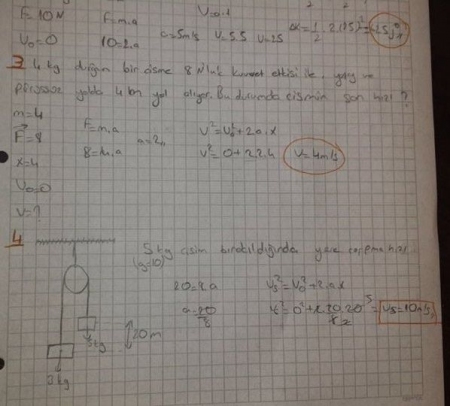 F=10N F=m.a
V₀=0 10=2.a a=5m/s V=5.5 V=25 ½.2.(25)²=625j
3 4 kg durgun bir cisme 8 N'luk kuvvet etkisi ile, yatay ve
pürüzsüz yolda 4 m yol alıyor. Bu durumda cismin son hızı ?
m=4
F=8 F=m.a a=2 V²=V₀²+2.a.x
x=4 8=4.a V²=0+2.2.4 V=4m/s
V₀=0
V=?
4
5 kg cisim bırakıldığında yere çarpma hızı
(g=10)
20=8.a Vs²=V₀²+2.ax
a=20/8 Vs²=0²+2.20.20 = Vs=10m/s
5kg
20m
3kg